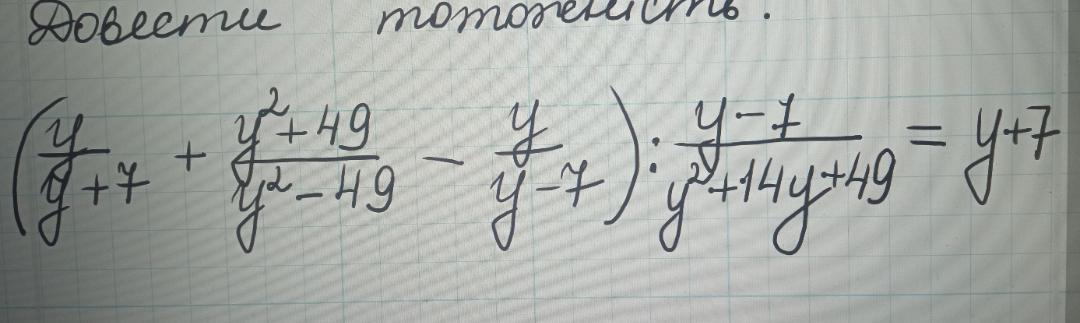 Довести тотожність.
(y/(y+7) + (y²+49)/(y²-49) - y/(y-7)) : (y-7)/(y²+14y+49) = y+7